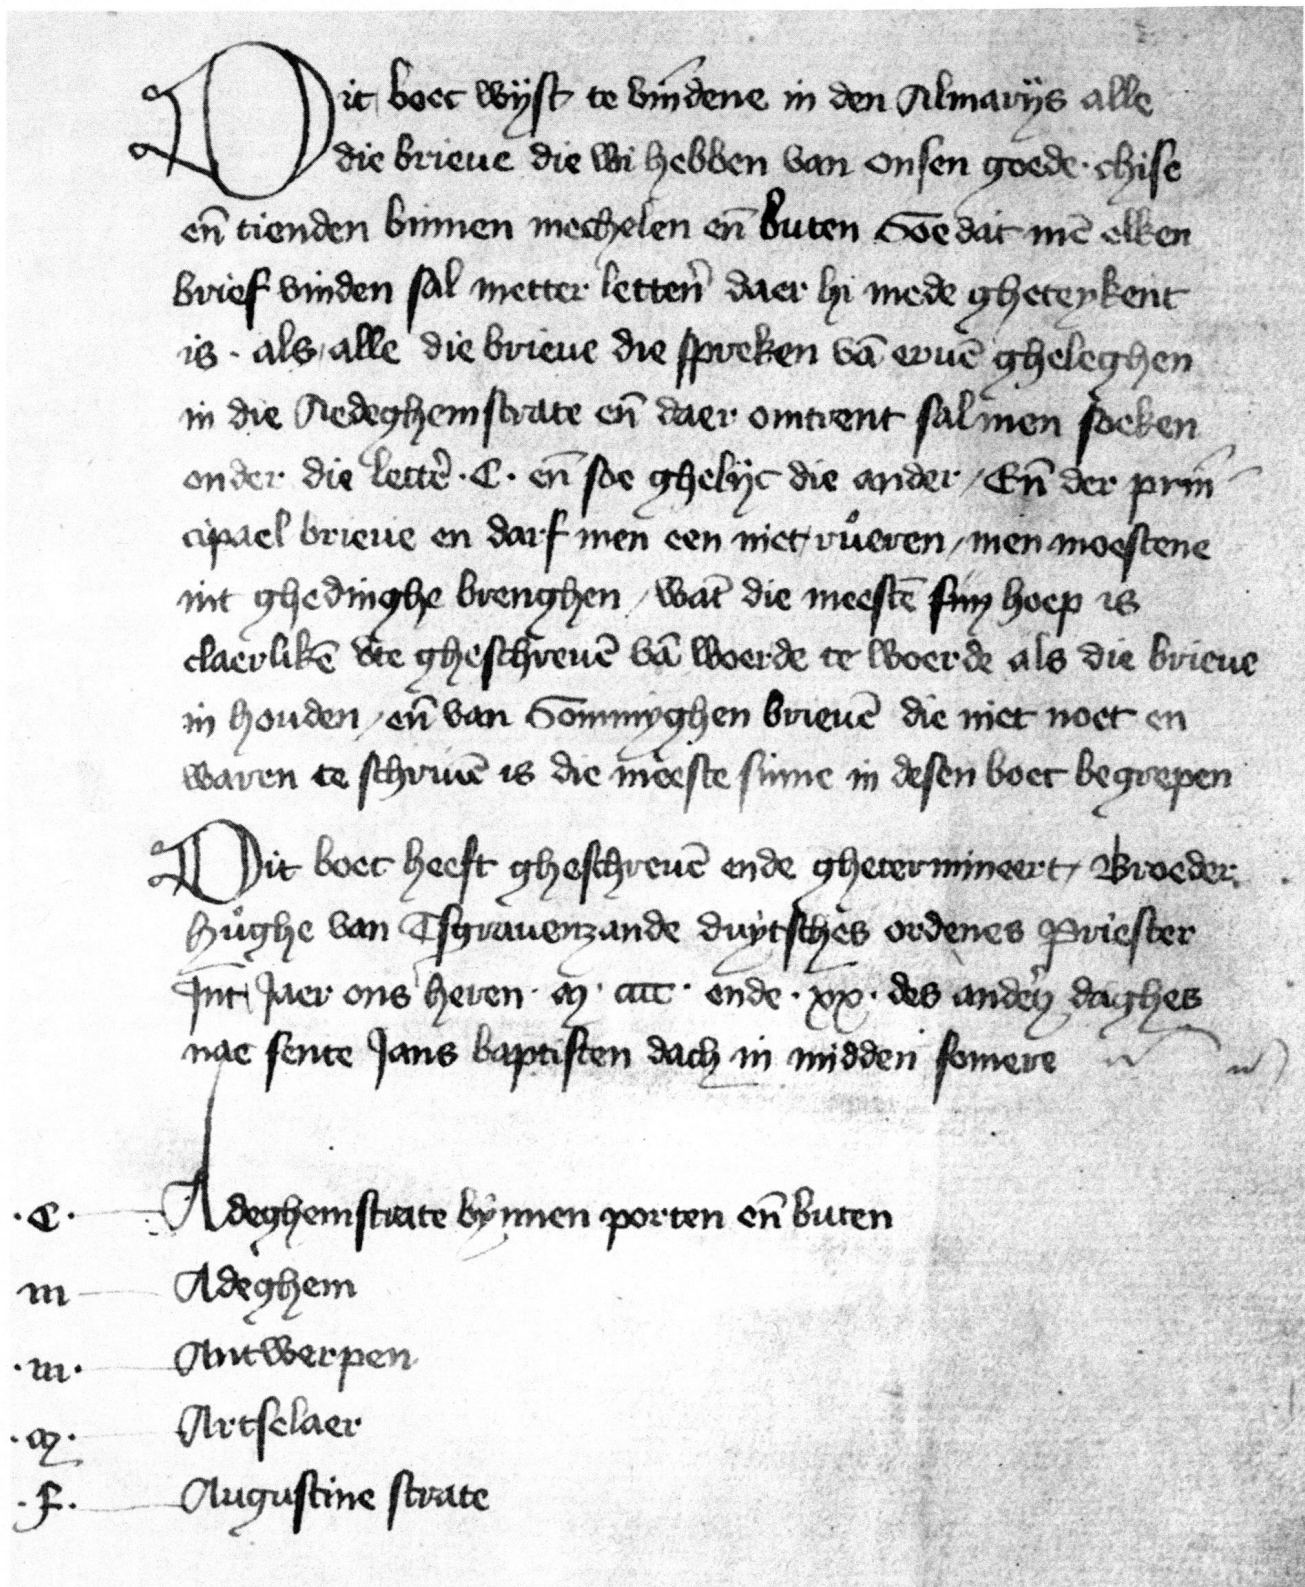 Dit boec wijst te vīndene in den Almarijs alle
die brieue die wi hebben van onsen goede · chise
eñ tienden binnen mechelen eñ buten Soe dat mē elken
brief vinden sal metter letteñ daer hi mede gheteykent
is · als alle die brieue die spreken vā eruē gheleghen
in die Aedeghemstrate eñ daer omtrent salmen soeken
onder die letter̄ · C · eñ soe ghelijc die ander / Eñ der prin
cipael brieue en darf men een niet růeren / men moestene
int ghedinghe brenghen / wāt die meestē hoep is
claerlikē vte gheschreuē vā woerde te woerde als die brieue
in houden / eñ van Sommyghen brieuē die niet noet en
waren te schriuē is die meeste sinne in desen boec begrepen
Dit boec heeft gheschreuē ende ghetermineert / Broeder
Hůghe van Tsgrauenzande duytsches ordenes Priester
Jnt Jaer ons heren · M · cccc · ende · xx · des anderē daghes
nae sente Jans baptisten dach in midden somere
· C · Adeghemstrate bynnen porten eñ buten
m Adeghem
· m · Antwerpen
· M · Artselaer
· F · Augustine strate